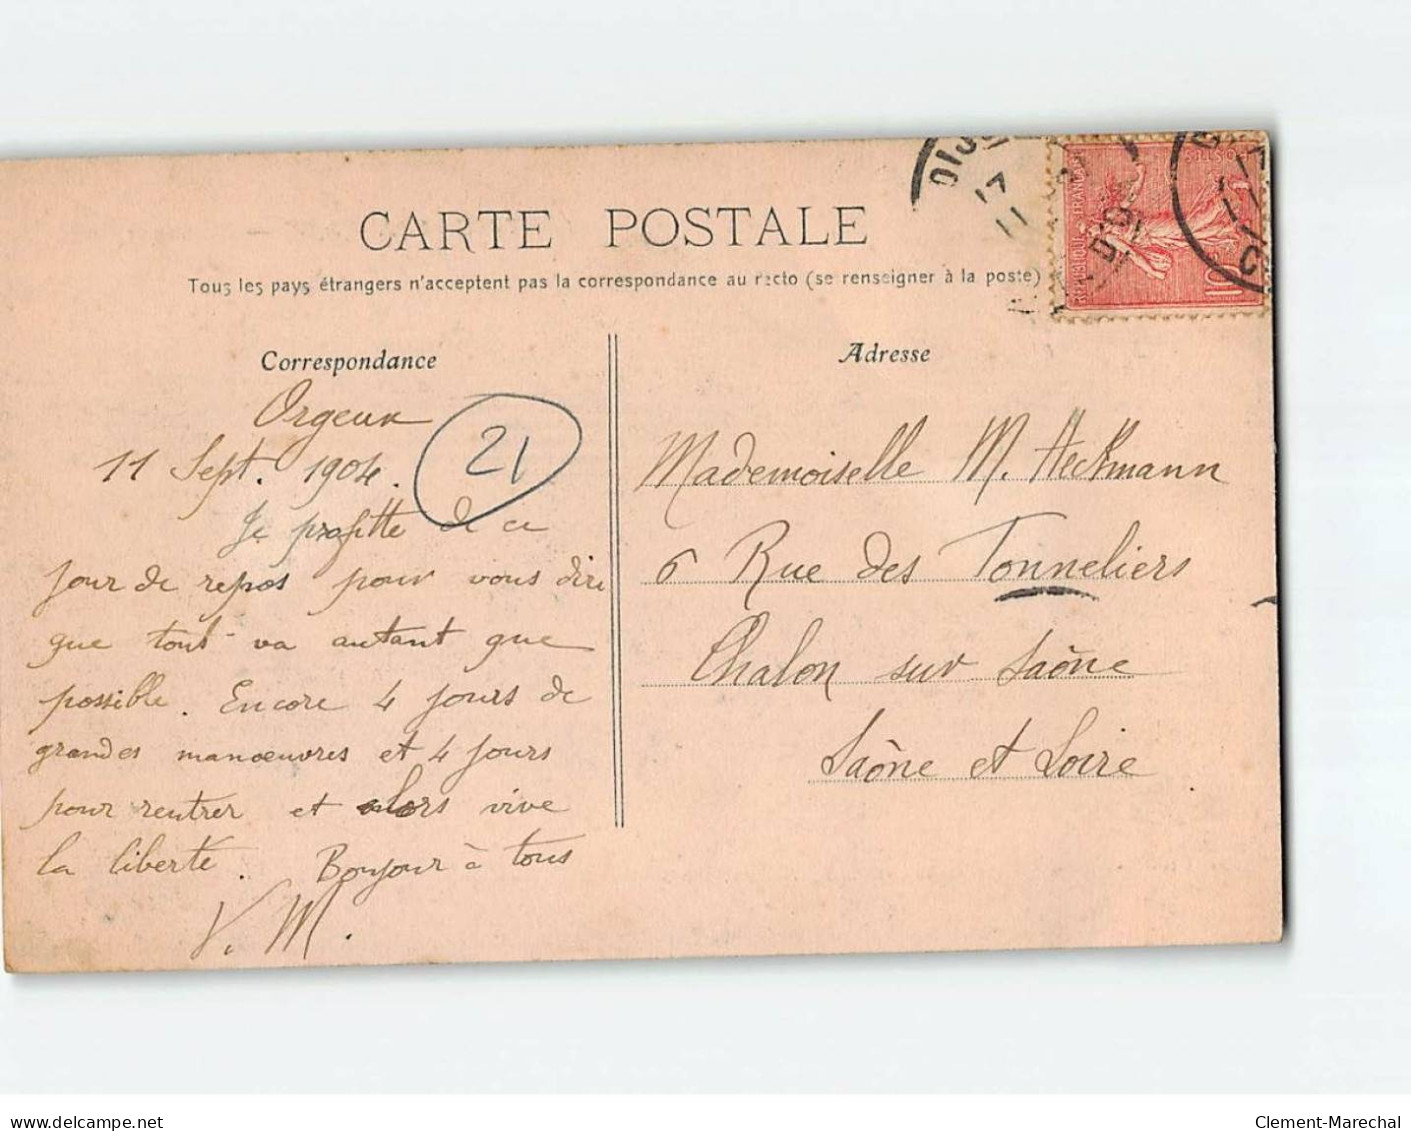 CARTE POSTALE
Tous les pays étrangers n'acceptent pas la correspondance au recto (se renseigner à la poste)
Correspondance
Orgeux
11 Sept. 1904.
21
Je profitte de ce
jour de repos pour vous dire
que tout va autant que
possible. Encore 4 jours de
grandes manœuvres et 4 jours
pour rentrer et alors vive
la liberté. Bonjour à tous
V. M.
Adresse
Mademoiselle M. Heckmann
6 Rue des Tonneliers
Chalon sur Saône
Saône et Loire
10
delcampe.net
Clement-Marechal